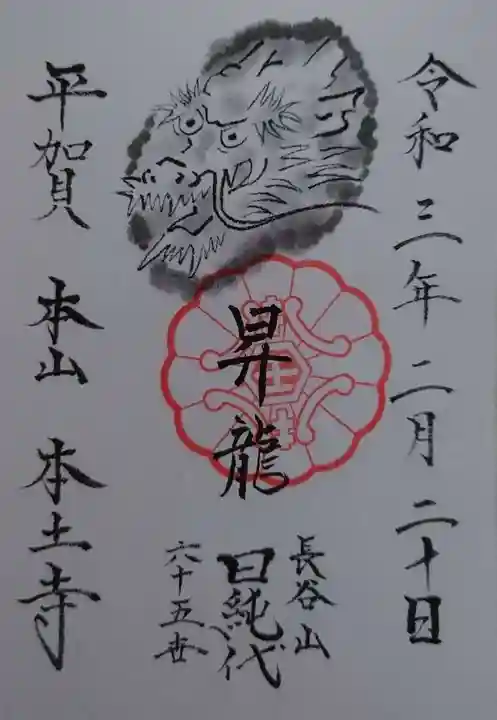 令和三年二月二十日
昇龍
長谷山
日純代
六十五世
平賀 本山 本土寺